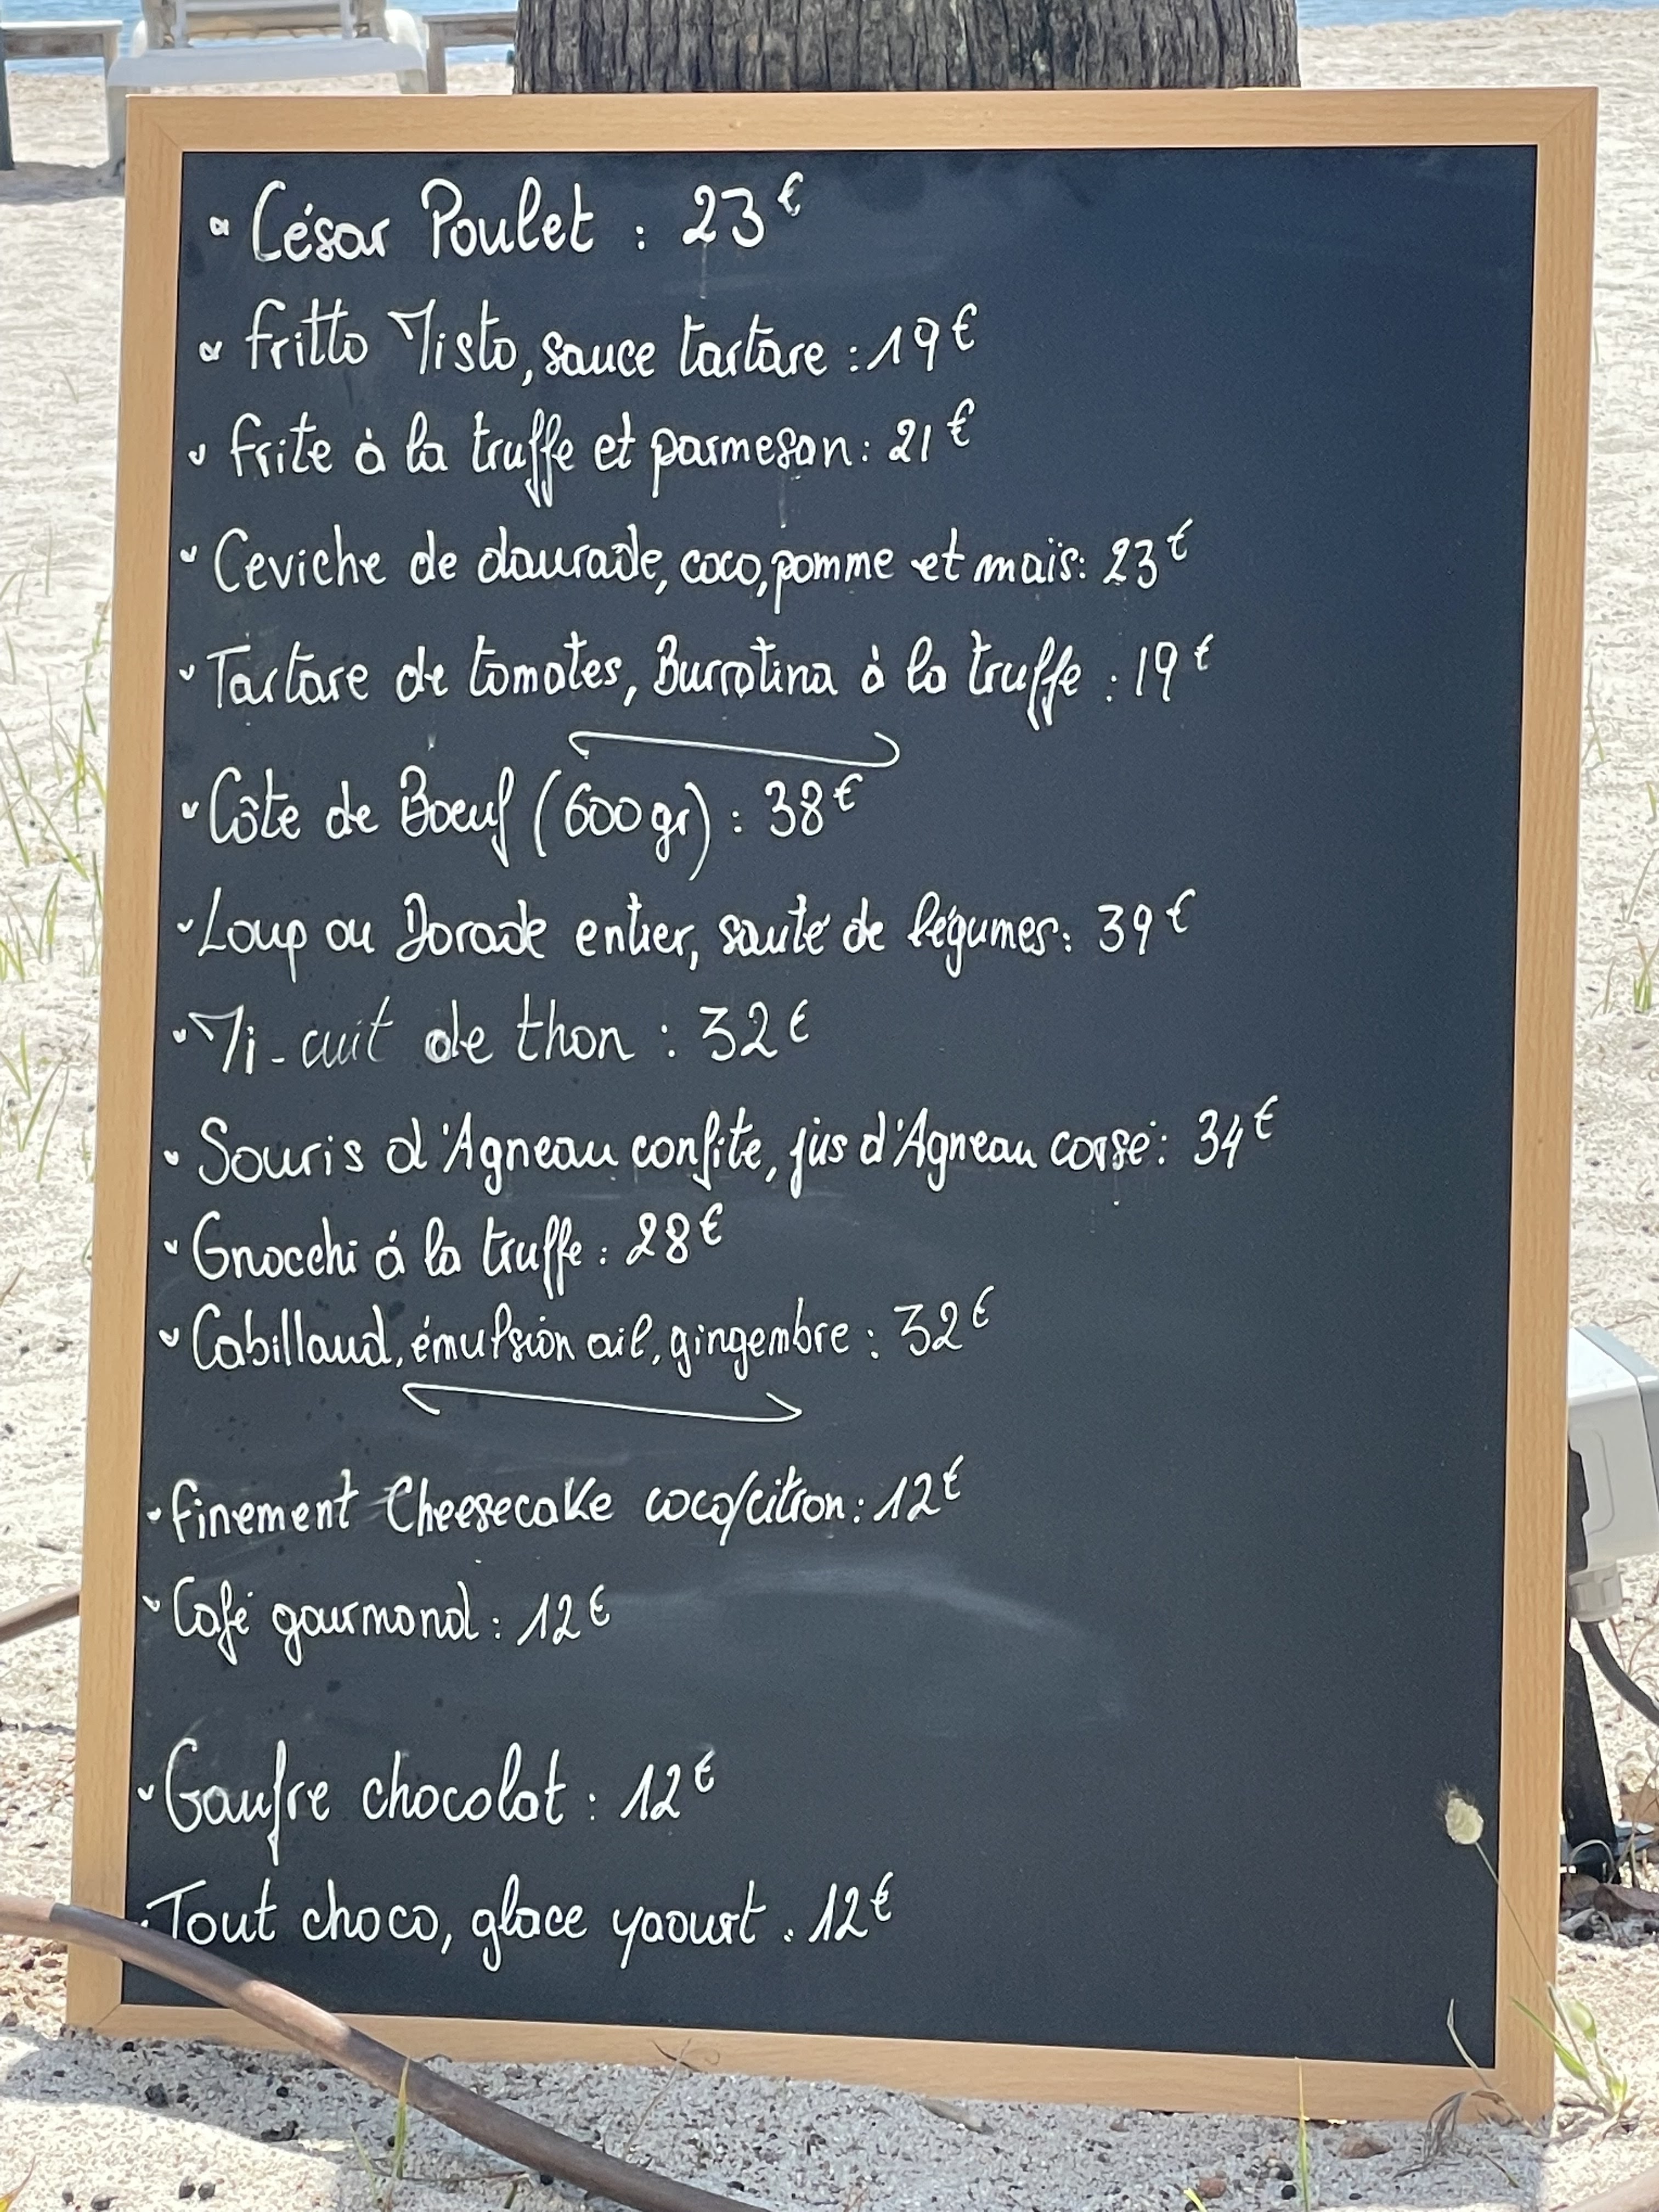 César Poulet : 23€
Fritto Misto, sauce tartare : 19€
Frite à la truffe et parmesan : 21€
Ceviche de daurade, coco, pomme et maïs : 23€
Tartare de tomates, Burratina à la truffe : 19€
Côte de Boeuf (600gr) : 38€
Loup ou Dorade entier, sauté de légumes : 39€
Mi-cuit de thon : 32€
Souris d'Agneau confite, jus d'Agneau corsé : 34€
Gnocchi á la truffe : 28€
Cabillaud, émulsion ail, gingembre : 32€
Finement Cheesecake coco/citron : 12€
Café gourmand : 12€
Gaufre chocolat : 12€
Tout choco, glace yaourt : 12€